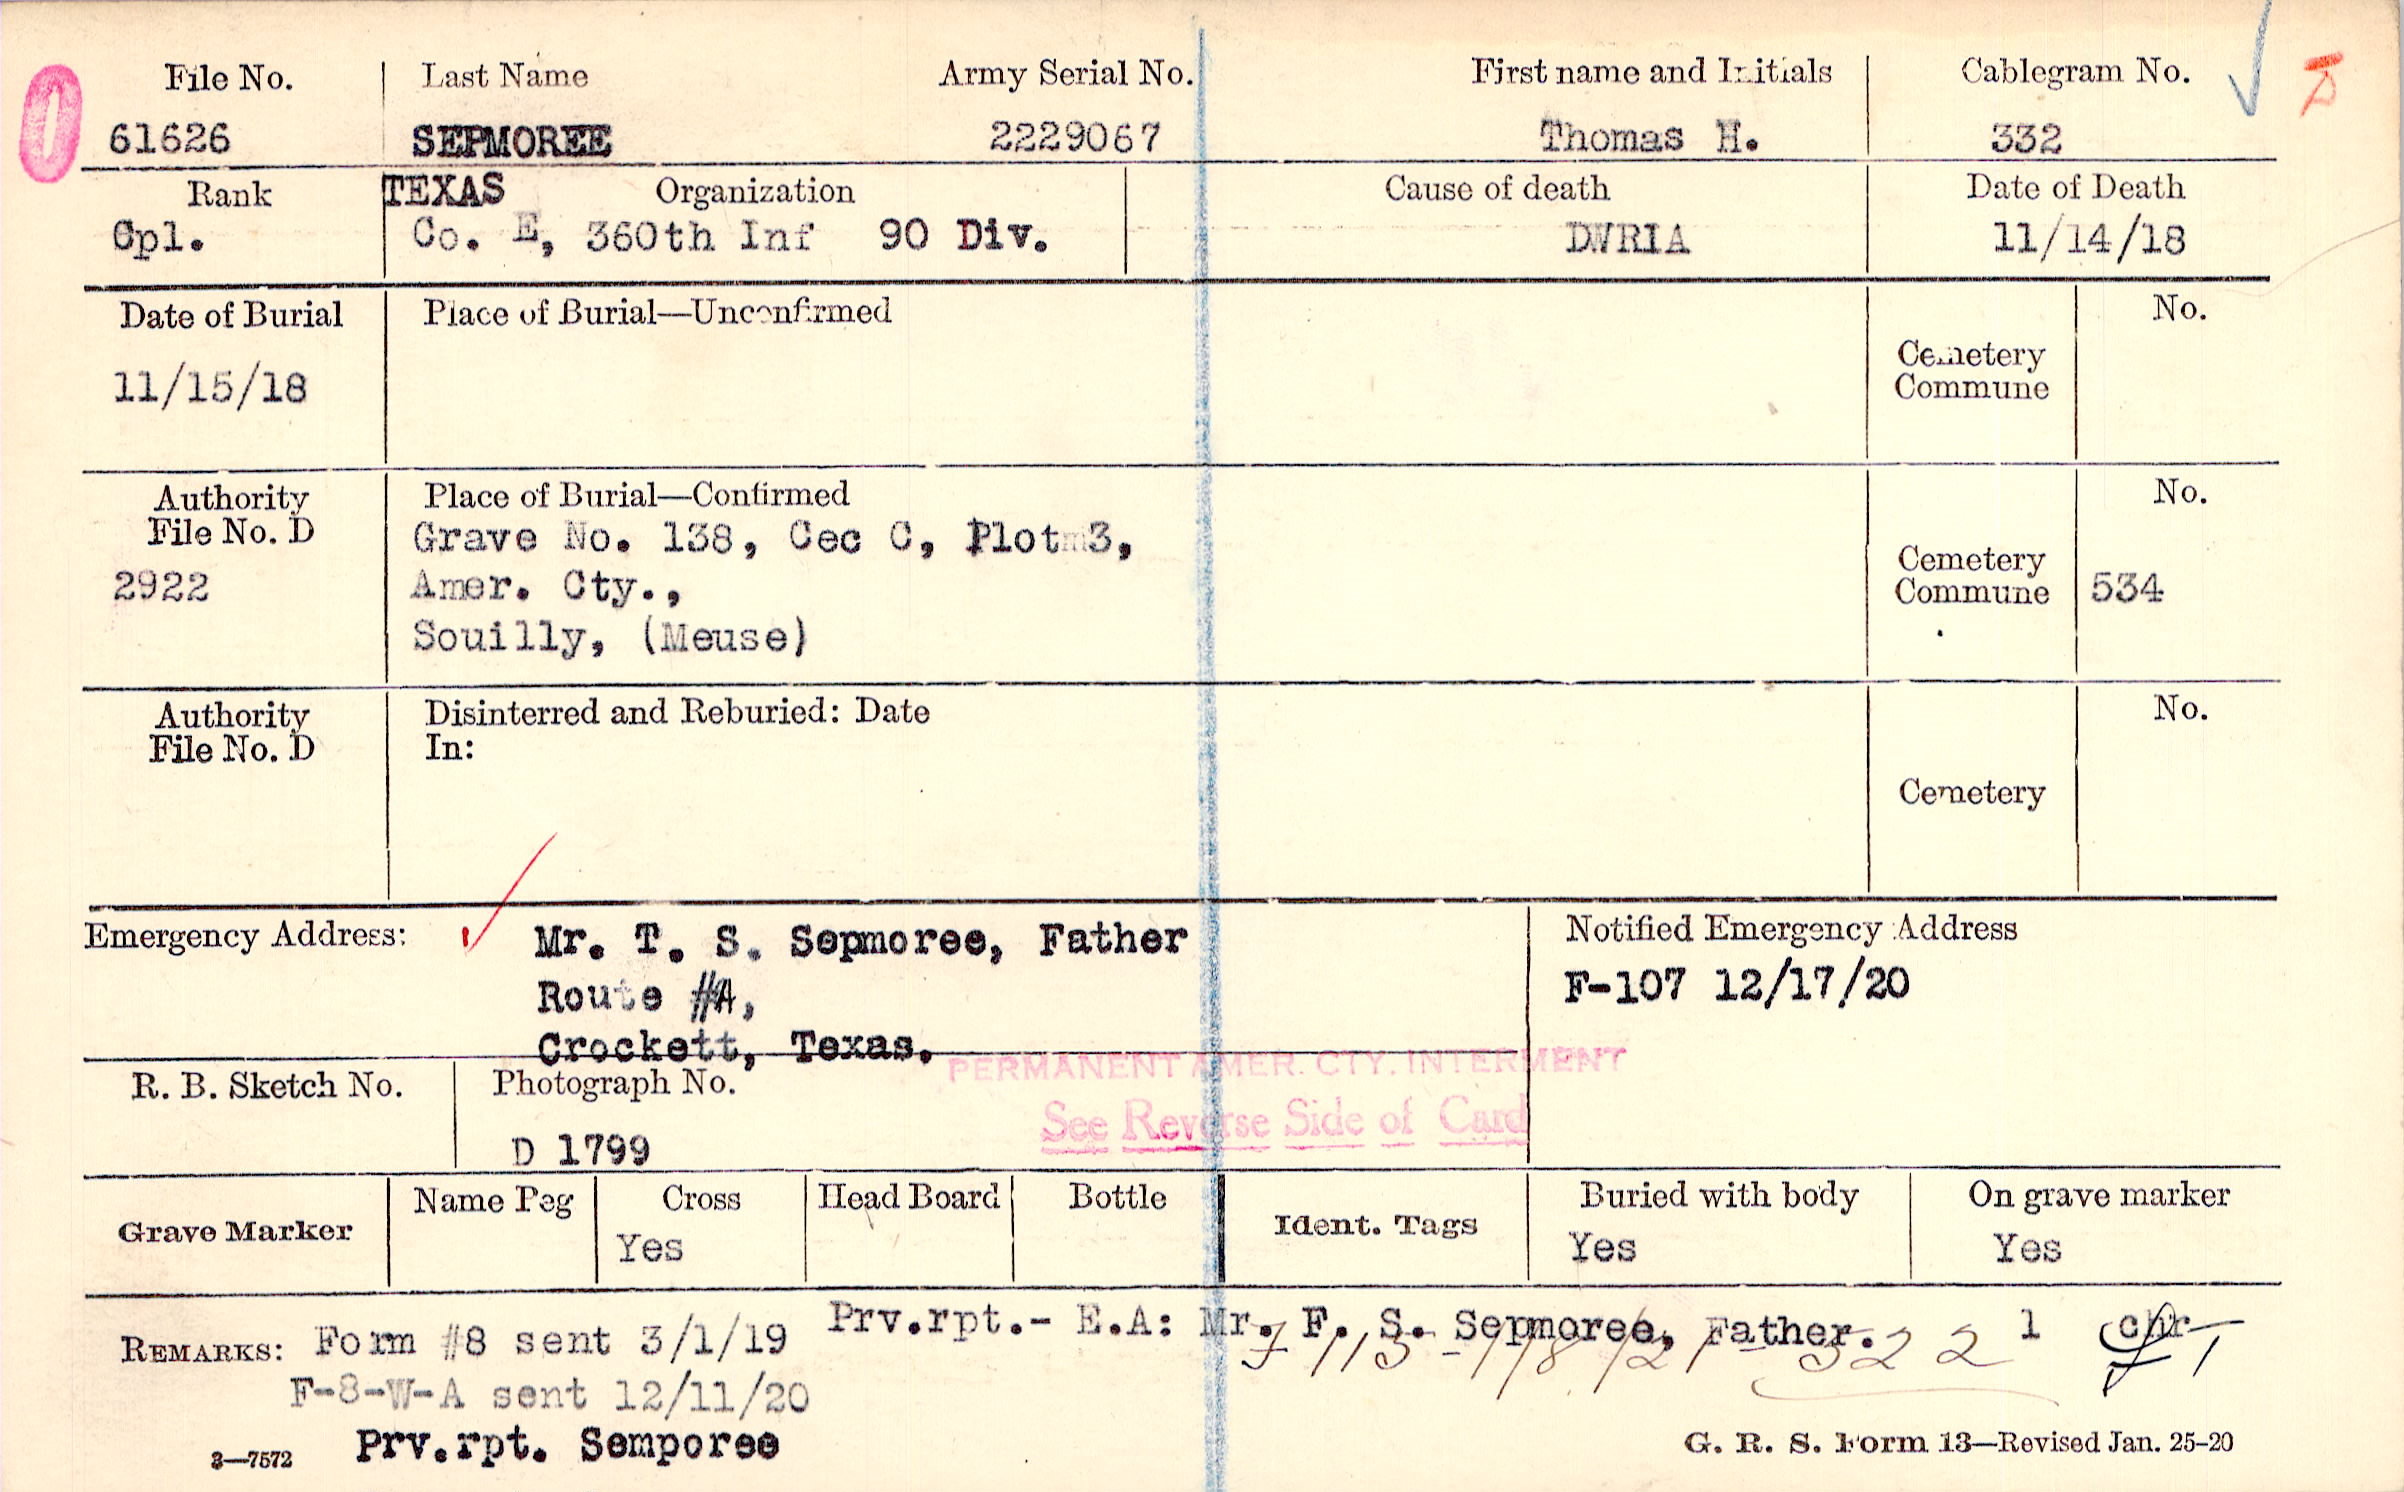 File No. Last Name Army Serial No. First name and Initials Cablegram No.
61626 SEPMOREE 2229067 Thomas H. 332
Rank TEXAS Organization Cause of death Date of Death
Cpl. Co. E, 360th Inf 90 Div. DWRIA 11/14/18
Date of Burial Place of Burial—Unconfirmed No.
11/15/18 Cemetery
Commune
Authority Place of Burial—Confirmed No.
File No. D Grave No. 138, Cec C, Plot 3,
2922 Amer. Cty., Cemetery
Commune 534
Souilly, (Meuse)
Authority Disinterred and Reburied: Date No.
File No. D In:
Cemetery
Emergency Address: Mr. T. S. Sepmoree, Father Notified Emergency Address
Route # F-107 12/17/20
Crockett, Texas.
PERMANENT AMER. CTY. INTERMENT
R. B. Sketch No. Photograph No.
See Reverse Side of Card
D 1799
Grave Marker Name Peg Cross Head Board Bottle Ident. Tags Buried with body On grave marker
Yes Yes Yes
Prv.rpt.- E.A: Mr. F. S. Sepmoree, Father. 1 chr
REMARKS: Form #8 sent 3/1/19
F-8-W-A sent 12/11/20
3—7572 Prv.rpt. Semporee G. R. S. Form 13—Revised Jan. 25-20